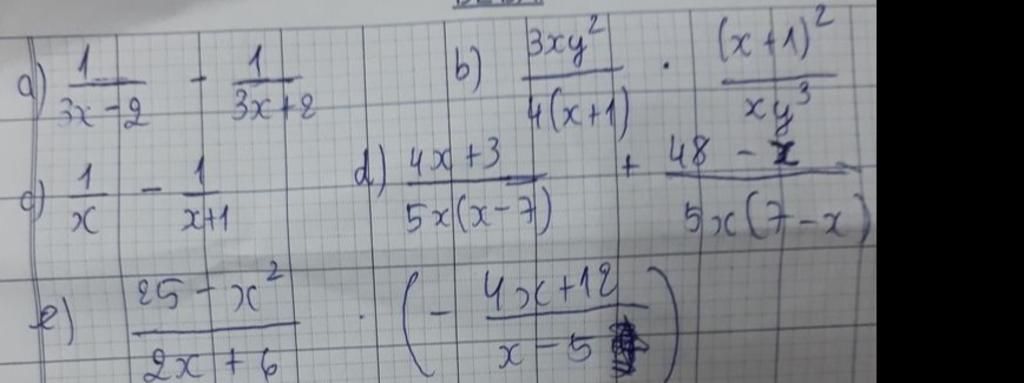 a) \frac{1}{3x-2} - \frac{1}{3x+2} b) \frac{3xy^2}{4(x+1)} \cdot \frac{(x+1)^2}{xy^3}
c) \frac{1}{x} - \frac{1}{x+1} d) \frac{4x+3}{5x(x-7)} + \frac{48-x}{5x(7-x)}
e) \frac{25-x^2}{2x+6} \cdot \left(-\frac{4x+12}{x-5}\right)